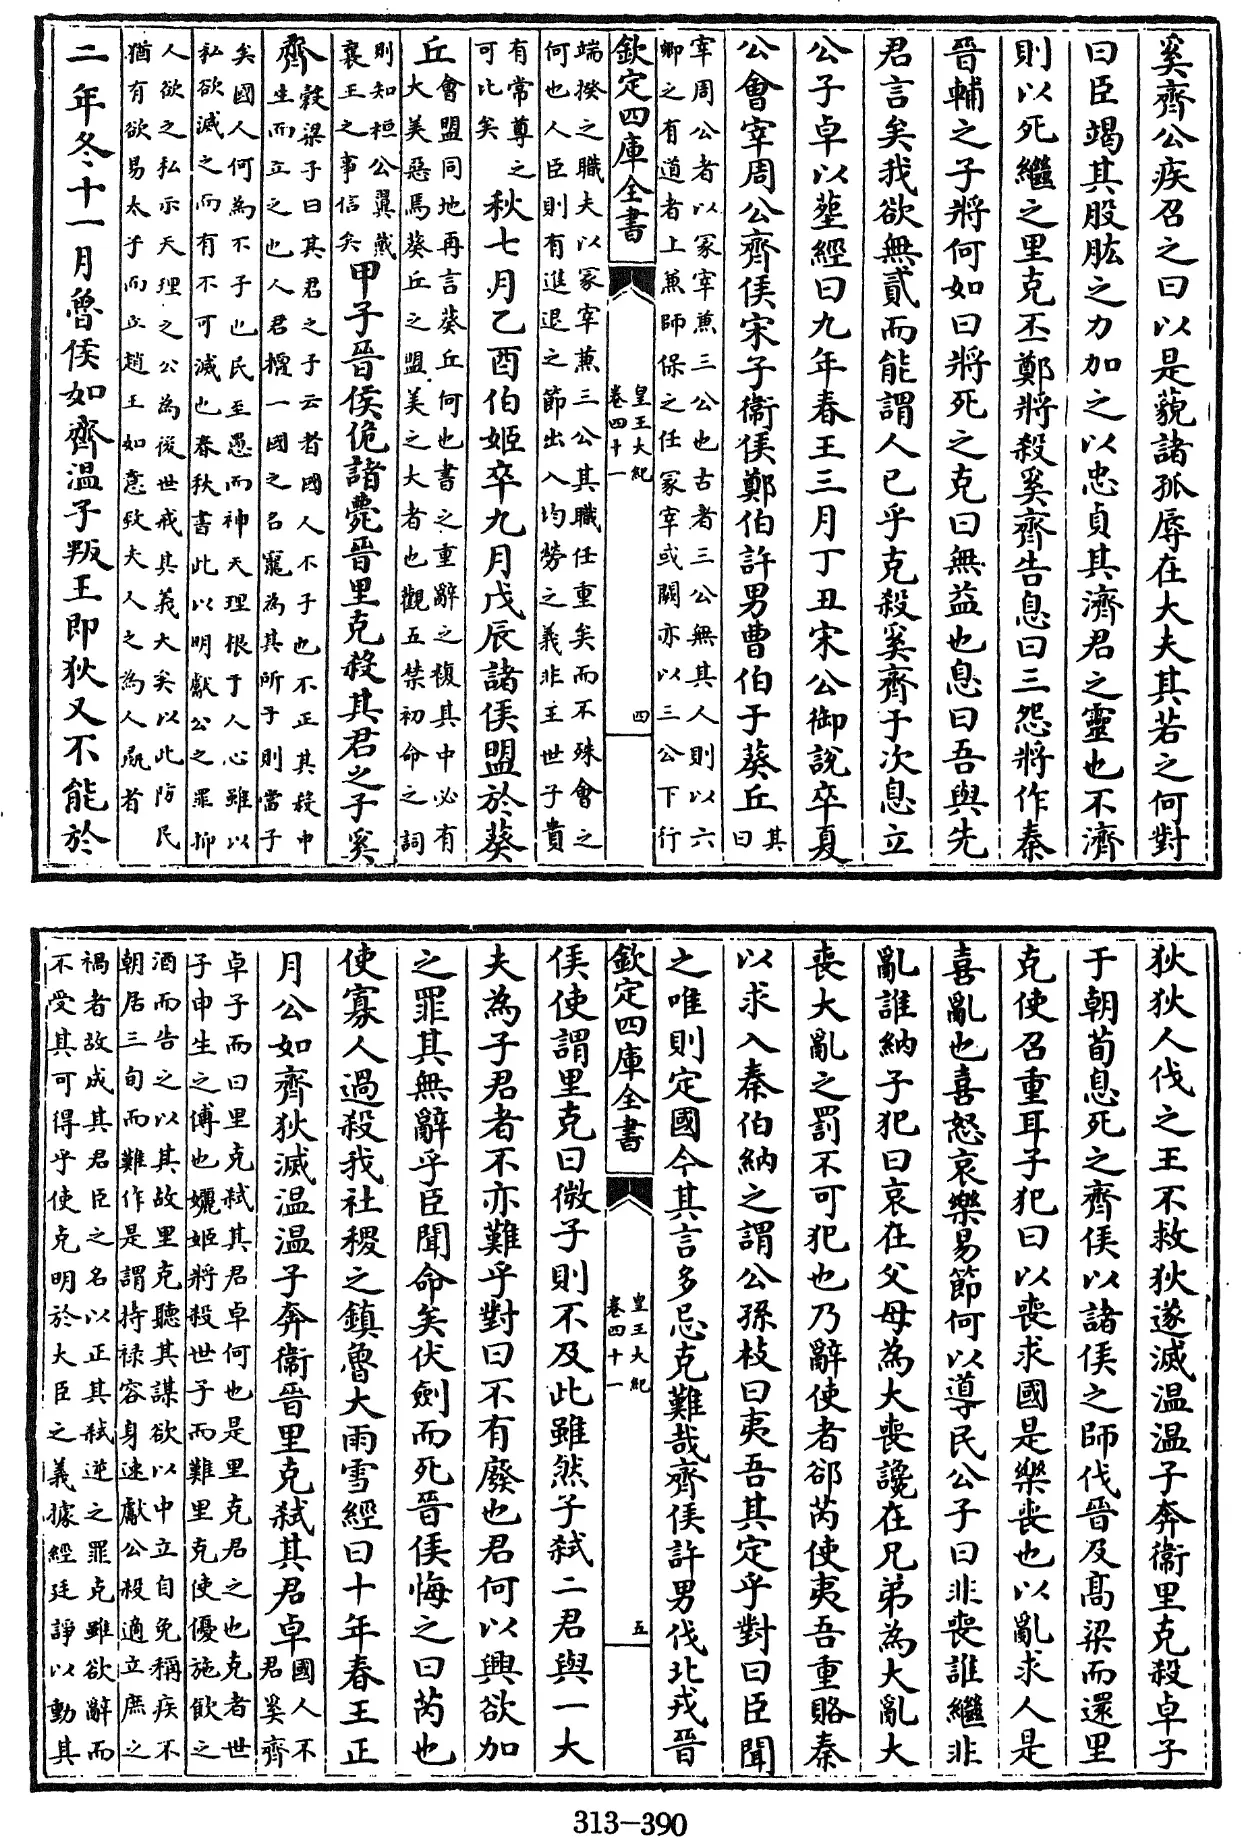 奚齊公疾召之曰以是藐諸孤辱在大夫其若之何對
曰臣竭其股肱之力加之以忠貞其濟君之靈也不濟
則以死繼之里克丕鄭將殺奚齊告息曰三怨將作秦
晉輔之子將何如曰將死之克曰無益也息曰吾與先
君言矣我欲無貳而能謂人已乎克殺奚齊于次息立
公子卓以塟經曰九年春王三月丁丑宋公御說卒夏
公會宰周公齊侯宋子衞侯鄭伯許男曹伯于葵丘其
曰
宰周公者以冢宰兼三公也古者三公無其人則以六
卿之有道者上兼師保之任冢宰或闕亦以三公下行
欽定四庫全書
皇王大紀
卷四十一
四
端揆之職夫以冢宰兼三公其職任重矣而不殊會之
何也人臣則有進退之節出入均勞之義非王世子貴
有常尊之
可比矣
秋七月乙酉伯姬卒九月戊辰諸侯盟於葵
丘會盟同地再言葵丘何也書之重辭之複其中必有
大美惡焉葵丘之盟美之大者也觀五禁初命之詞
則知桓公翼戴
襄王之事信矣
甲子晉侯佹諸薨晉里克殺其君之子奚
齊榖梁子曰其君之子云者國人不子也不正其殺申
生而立之也人君擅一國之名寵為其所子則當子
矣國人何為不子也民至愚而神天理根于人心雖以
私欲滅之而有不可滅也春秋書此以明獻公之罪抑
人欲之私示天理之公為後世戒其義大矣以此防民
猶有欲易太子而立趙王如意致夫人之為人彘者
二年冬十一月魯侯如齊温子叛王即狄又不能於
狄狄人伐之王不救狄遂滅温温子奔衞里克殺卓子
于朝荀息死之齊侯以諸侯之師伐晉及髙梁而還里
克使召重耳子犯曰以喪求國是樂喪也以亂求人是
喜亂也喜怒哀樂易節何以導民公子曰非喪誰繼非
亂誰納子犯曰哀在父母為大喪讒在兄弟為大亂大
喪大亂之罰不可犯也乃辭使者郤芮使夷吾重賂秦
以求入秦伯納之謂公孫枝曰夷吾其定乎對曰臣聞
之唯則定國今其言多忌克難哉齊侯許男伐北戎晉
欽定四庫全書
皇王大紀
卷四十一
五
侯使謂里克曰微子則不及此雖然子弒二君與一大
夫為子君者不亦難乎對曰不有廢也君何以興欲加
之罪其無辭乎臣聞命矣伏劍而死晉侯悔之曰芮也
使寡人過殺我社稷之鎮魯大雨雪經曰十年春王正
月公如齊狄滅温温子奔衞晉里克弒其君卓國人不
君奚齊
卓子而曰里克弒其君卓何也是里克君之也克者世
子申生之傅也孋姬將殺世子而難里克使優施飲之
酒而告之以其故里克聽其謀欲以中立自免稱疾不
朝居三旬而難作是謂持禄容身速獻公殺適立庶之
禍者故成其君臣之名以正其弒逆之罪克雖欲辭而
不受其可得乎使克明於大臣之義據經廷諍以動其
313-390